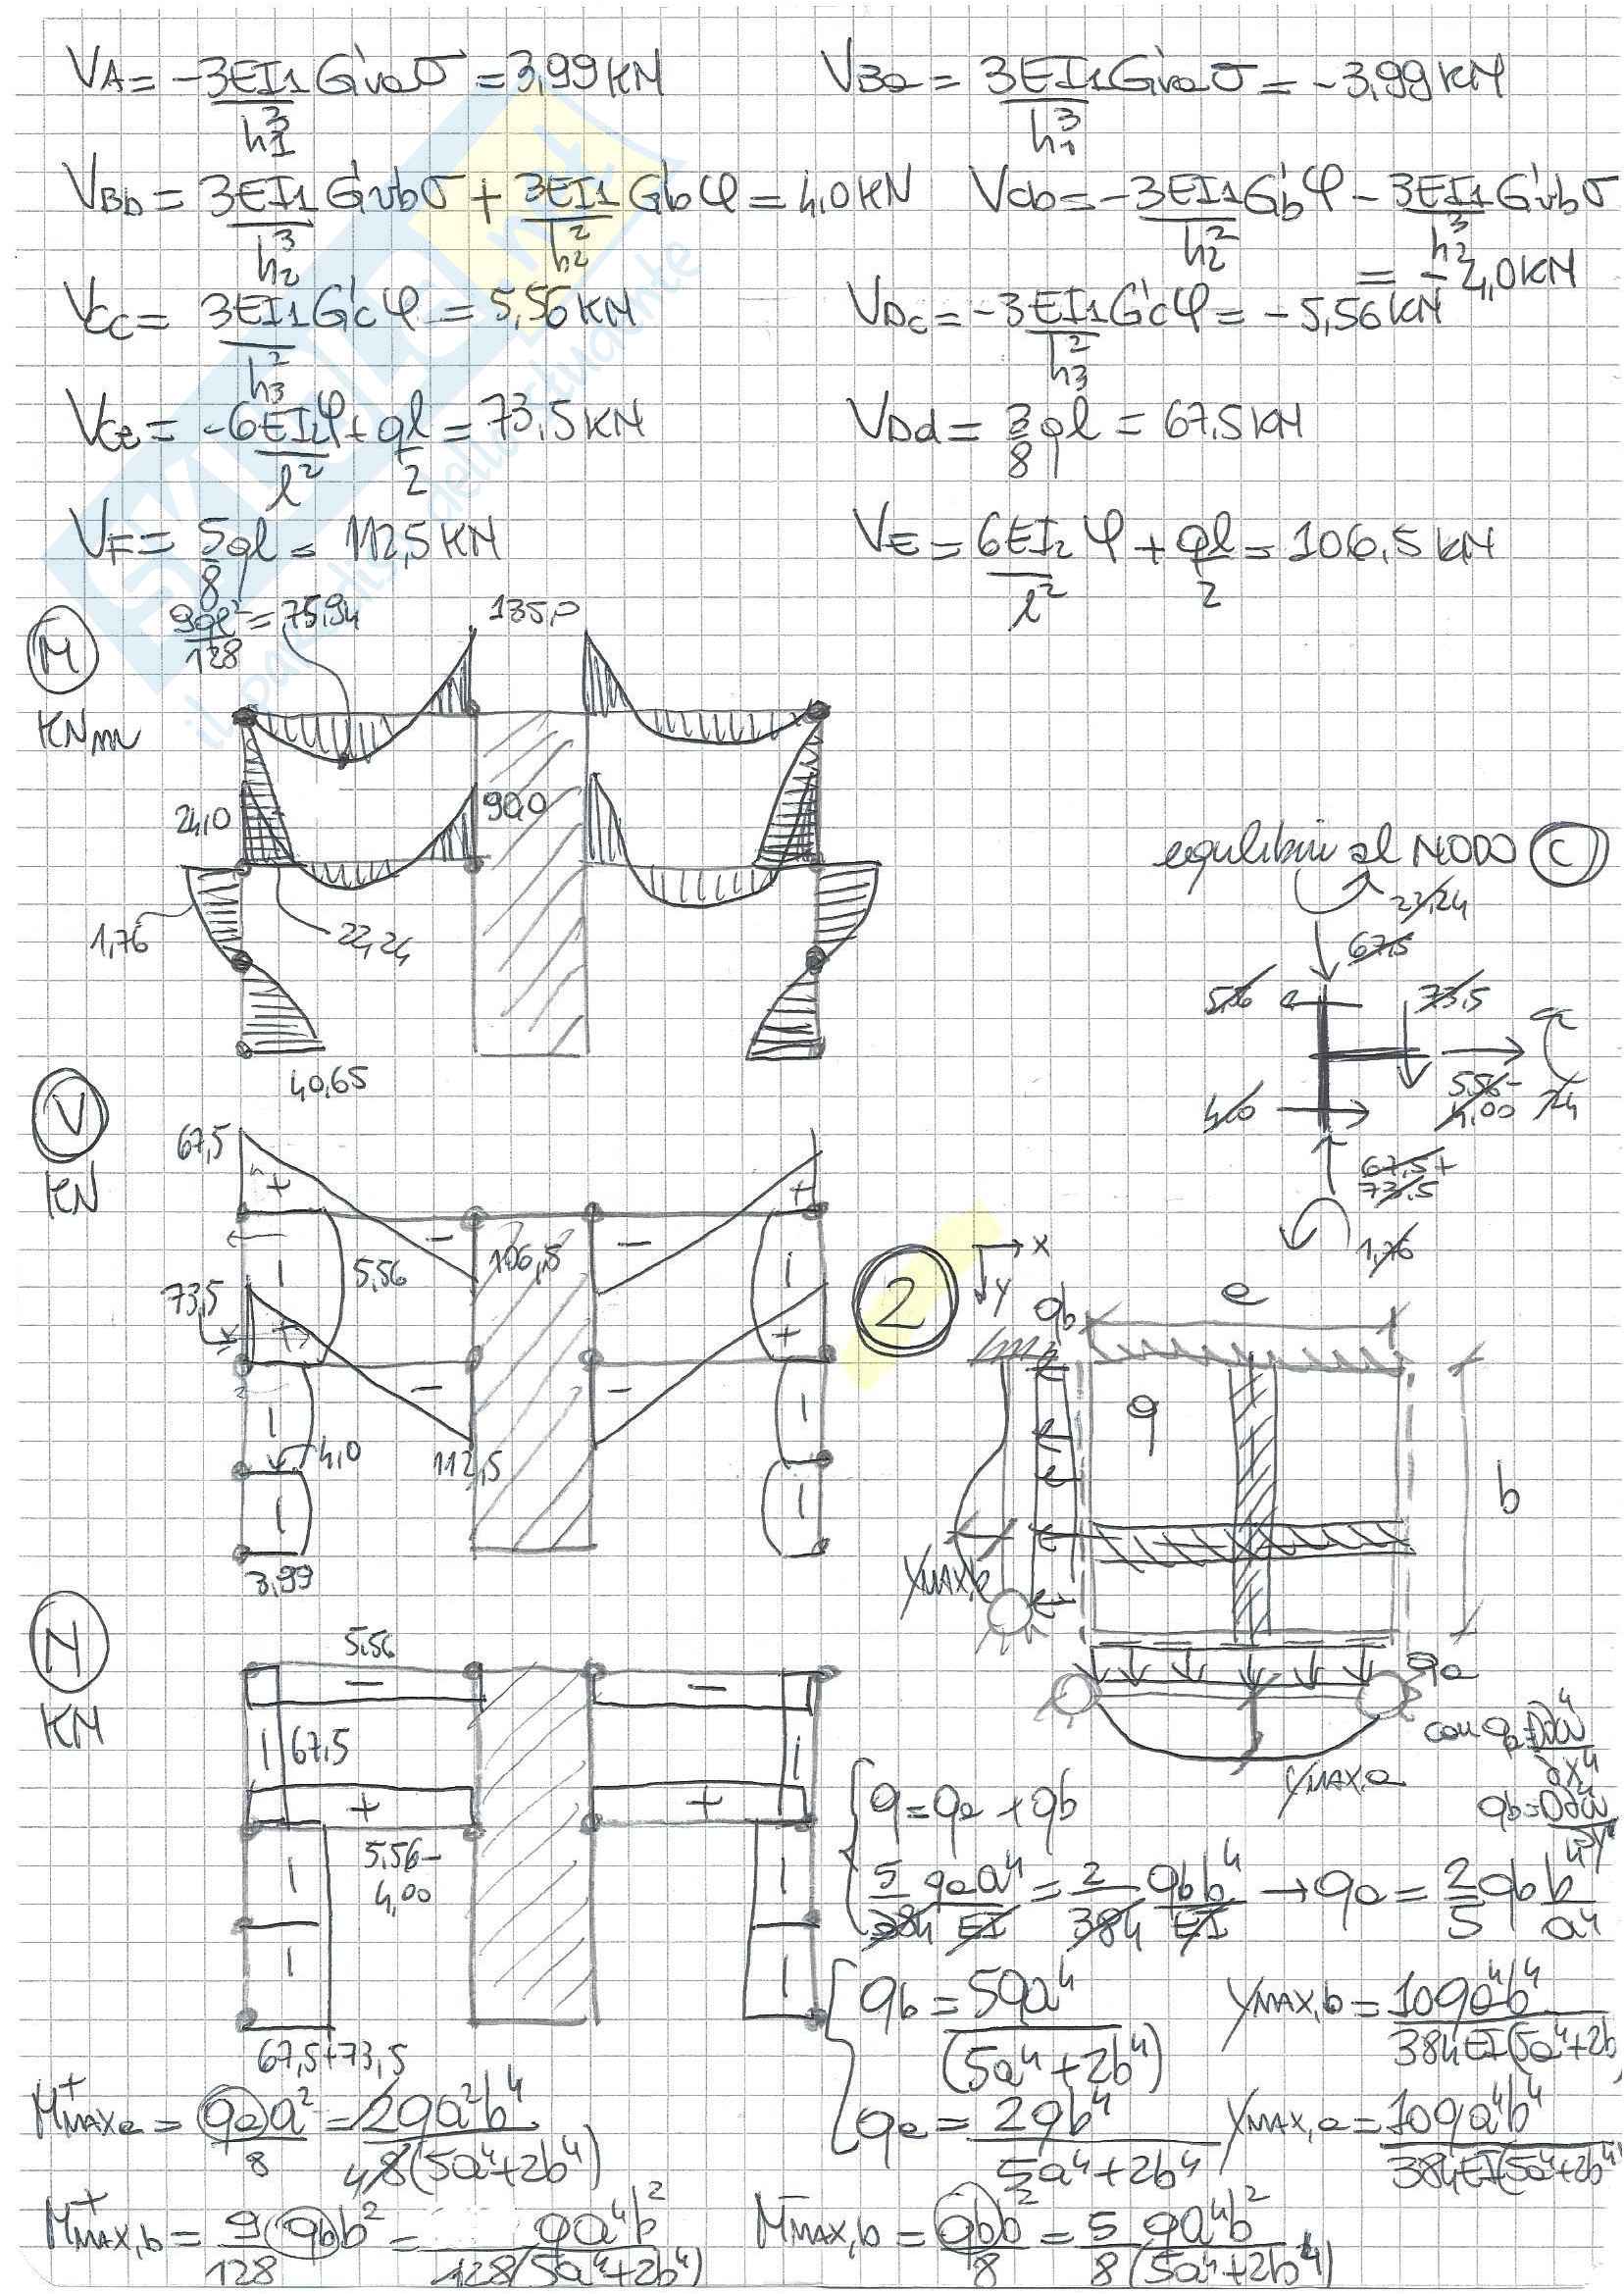 VA = -3EI1/h1³ G'va σ = 3,99 KN
VBa = 3EI1/h1³ G'va σ = -3,99 KN
VBb = 3EI1/h2³ G'vb σ + 3EI1/h2² G'b φ = 4,0 KN
VCb = -3EI1/h2² G'b φ - 3EI1/h2³ G'vb σ
= -4,0 KN
VCc = 3EI1/h3² G'c φ = 5,56 KN
VDc = -3EI1/h3² G'c φ = -5,56 KN
VCe = -6EI2/l² φ + ql/2 = 73,5 KN
VDd = 3/8 ql = 67,5 KN
VF = 5/8 ql = 112,5 KN
VE = 6EI2/l² φ + ql/2 = 106,5 KN
M
KNm
9ql²/128 = 75,94
135,0
24,0
90,0
1,76
22,24
40,65
equilibrio al NODO C
67,5
5,56
73,5
4,0
5,56-
4,00
24
67,5+
73,5
1,76
V
KN
67,5
5,56
106,5
73,5
4,0
112,5
3,99
2
x
y
qb
a
q
b
YMAX,b
qa
YMAX,a
con qa = D∂⁴w/∂x⁴
qb = D∂⁴w/∂y⁴
N
KN
5,56
67,5
5,56-
4,00
67,5+73,5
q = qa + qb
5/384 qa a⁴/EI = 2/384 qb b⁴/EI → qa = 2/5 qb b⁴/a⁴
qb = 5qa⁴/(5a⁴+2b⁴)
YMAX,b = 10qa⁴b⁴/384EI(5a⁴+2b
qa = 2qb⁴/5a⁴+2b⁴
YMAX,a = 10qa⁴b⁴/384EI(5a⁴+2b⁴
M⁺MAX,a = qa a²/8 = 2qa²b⁴/48(5a⁴+2b⁴)
M⁺MAX,b = 9/128 qb b² = qa⁴b²/128(5a⁴+2b⁴)
M⁻MAX,b = qb b²/8 = 5/8 qa⁴b²/(5a⁴+2b⁴)